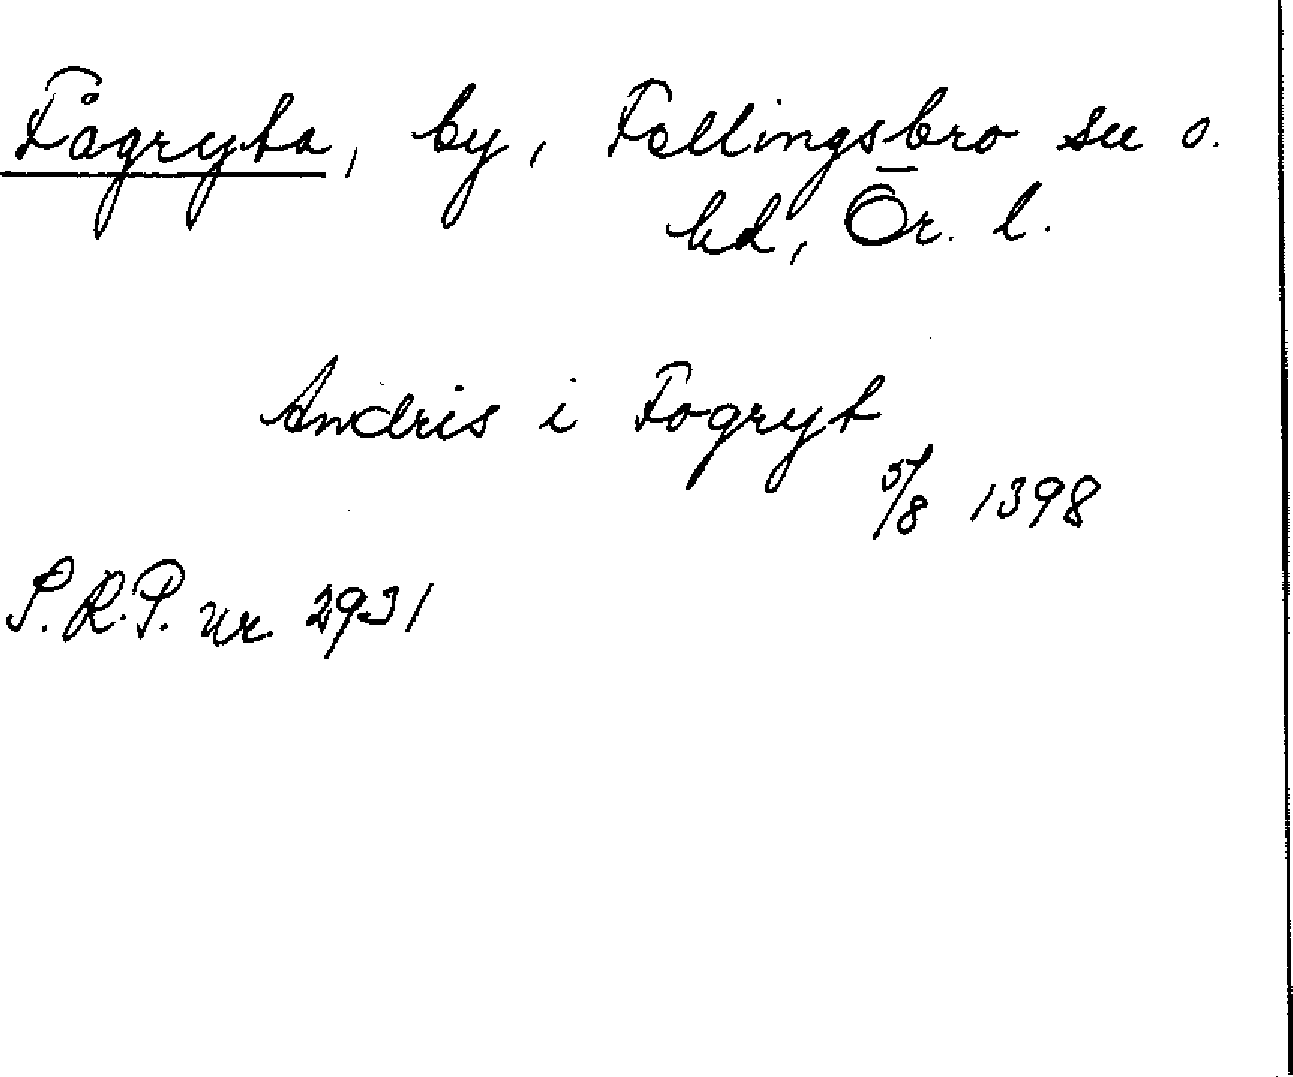 Fågryta, by, Fellingsbro sn o.
hd, Ör. l.
Andris i Fogryt
5/8 1398
S.R.P. nr 2931